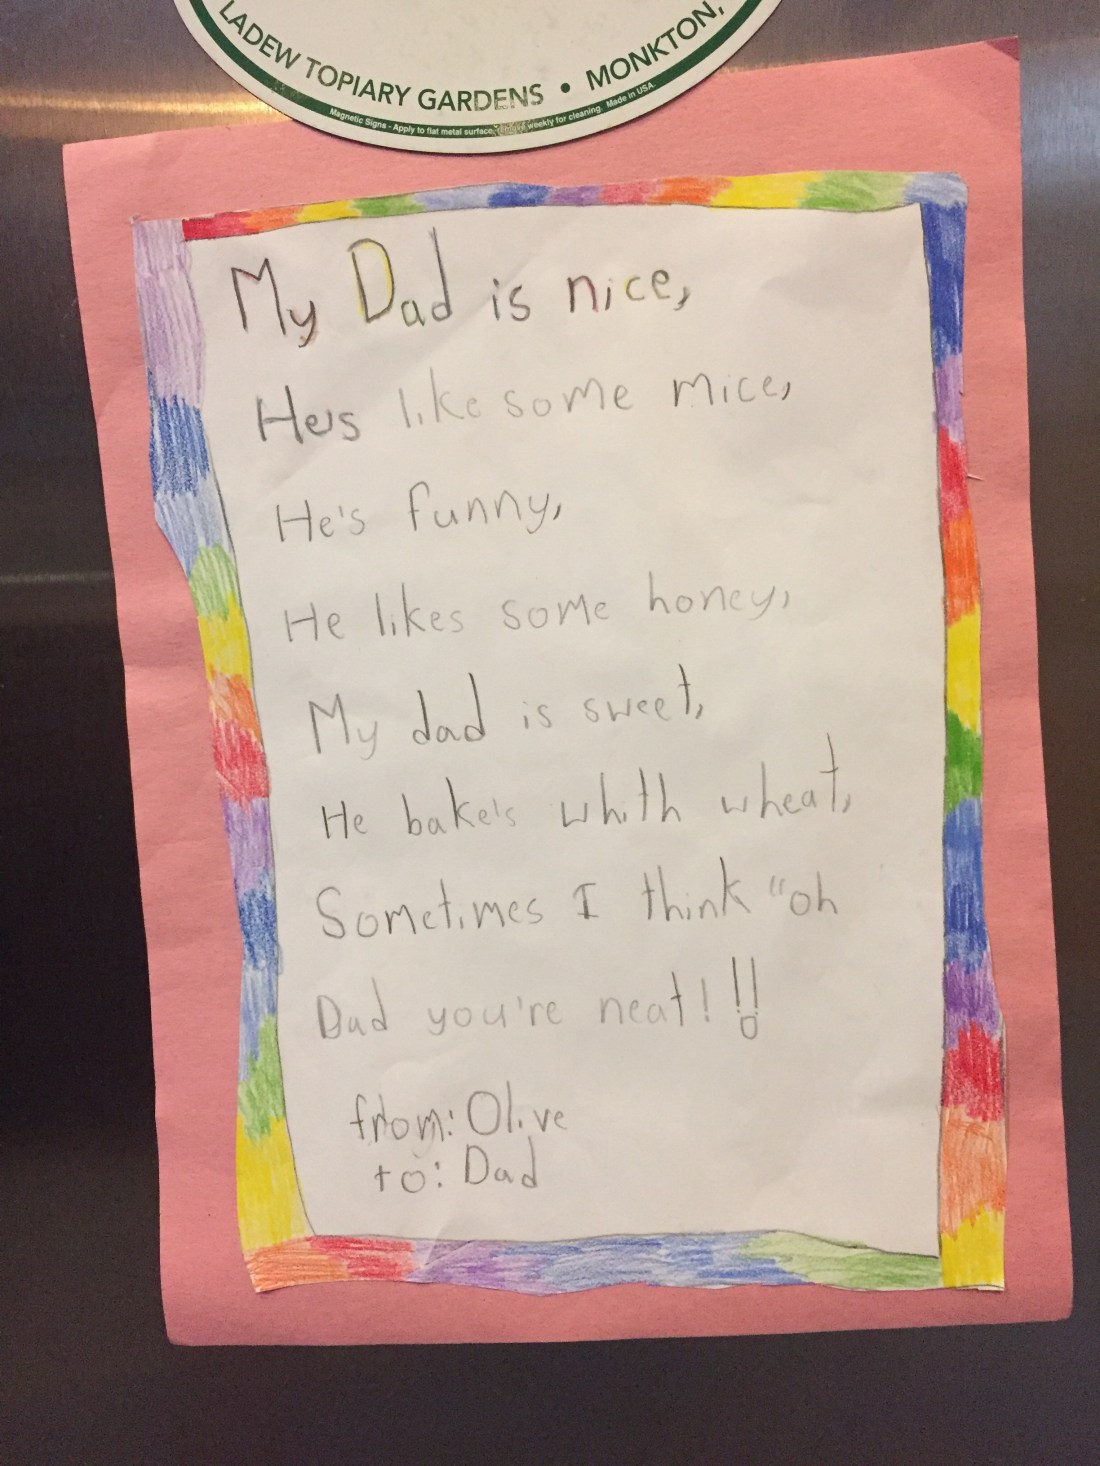 LADEW TOPIARY GARDENS • MONKTON,
Magnetic Signs - Apply to flat metal surface. weekly for cleaning. Made in USA.
My Dad is nice,
He's like some mice,
He's funny,
He likes some honey,
My dad is sweet,
He bake's whith wheat,
Sometimes I think "oh
Dad you're neat!!!
from: Olive
to: Dad